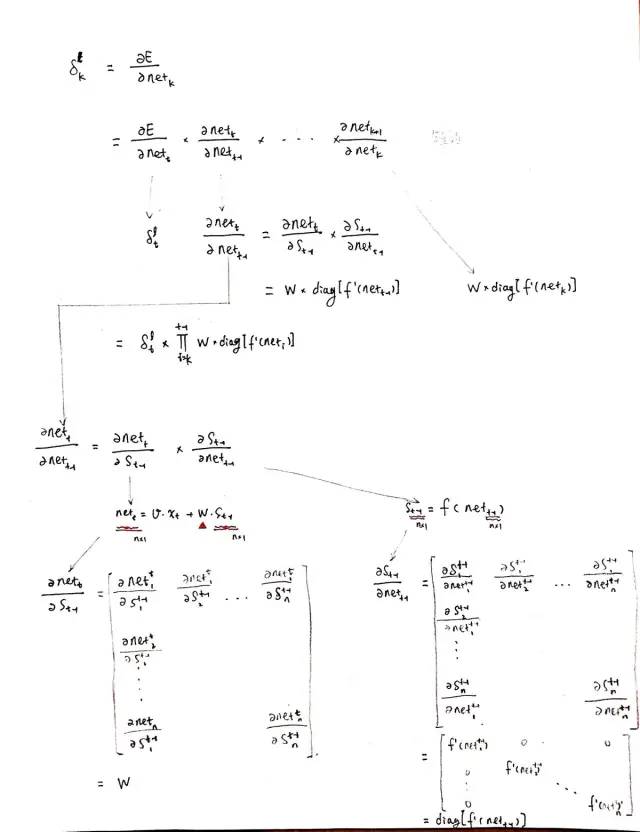 δ_k^l = ∂E/∂net_k
= ∂E/∂net_t × ∂net_t/∂net_{t-1} × ···· × ∂net_{k+1}/∂net_k
δ_t^l   ∂net_t/∂net_{t-1} = ∂net_t/∂S_{t-1} × ∂S_{t-1}/∂net_{t-1}
= W × diag[f'(net_{t-1})]   W × diag[f'(net_k)]
= δ_t^l × ∏_{i=k}^{t-1} W × diag[f'(net_i)]
∂net_t/∂net_{t-1} = ∂net_t/∂S_{t-1} × ∂S_{t-1}/∂net_{t-1}
net_t = U·x_t + W·S_{t-1}   S_{t-1} = f(net_{t-1})
n×1   n×1   n×1
∂net_t/∂S_{t-1} = [ ∂net_1^t/∂S_1^{t-1}   ∂net_1^t/∂S_2^{t-1}   ...   ∂net_1^t/∂S_n^{t-1}
∂net_2^t/∂S_1^{t-1}
⋮
∂net_n/∂S_1^{t-1}   ∂net_n^t/∂S_n^{t-1} ]
= W
∂S_{t-1}/∂net_{t-1} = [ ∂S_1^{t-1}/∂net_1^{t-1}   ∂S_1^{t-1}/∂net_2^{t-1}   ...   ∂S_1^{t-1}/∂net_n^{t-1}
∂S_2^{t-1}/∂net_1^{t-1}
⋮
∂S_n^{t-1}/∂net_1^{t-1}   ∂S_n^{t-1}/∂net_n^{t-1} ]
= [ f'(net_1^{t-1})   0   0
0   f'(net_2^{t-1})
⋮   ⋱
0   f'(net_n^{t-1}) ]
= diag[f'(net_{t-1})]